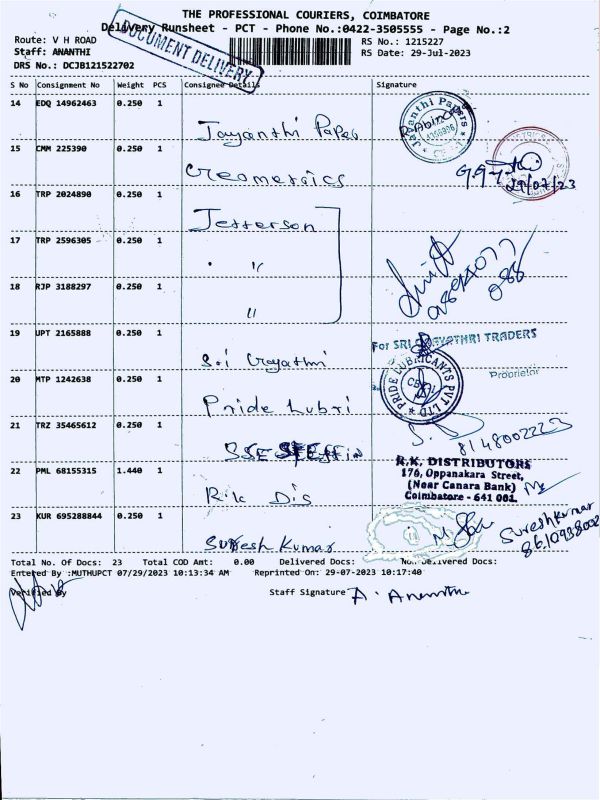 THE PROFESSIONAL COURIERS, COIMBATORE
Delivery Runsheet - PCT - Phone No.:0422-3505555 - Page No.:2
DOCUMENT DELIVERY
Route: V H ROAD
RS No.: 1215227
Staff: ANANTHI
RS Date: 29-Jul-2023
DRS No.: DCJB121522702
S No Consignment No Weight PCS Consignee Details Signature
14 EDQ 14962463 0.250 1
Jayanthi Papers
15 CMM 225390 0.250 1
29/07/23
16 TRP 2024890 0.250 1
Jefferson
17 TRP 2596305 0.250 1
"
18 RJP 3188297 0.250 1
"
19 UPT 2165888 0.250 1
Sri Gayathri
For SRI GAYATHRI TRADERS
Proprietor
20 MTP 1242638 0.250 1
Pride Lubri
PRIDE LUBRICANTS PVT LTD
CBE
21 TRZ 35465612 0.250 1
8148002223
22 PML 68155315 1.440 1
R.k Dis
R.K. DISTRIBUTORS
176, Oppanakara Street,
(Near Canara Bank)
Coimbatore - 641 001.
23 KUR 695288844 0.250 1
Suresh Kumar
Sureshkumar
Total No. Of Docs: 23 Total COD Amt: 0.00 Delivered Docs: Non Delivered Docs:
Entered By :MUTHUPCT 07/29/2023 10:13:34 AM Reprinted On: 29-07-2023 10:17:40
Verified By
Staff Signature A. Ananthi